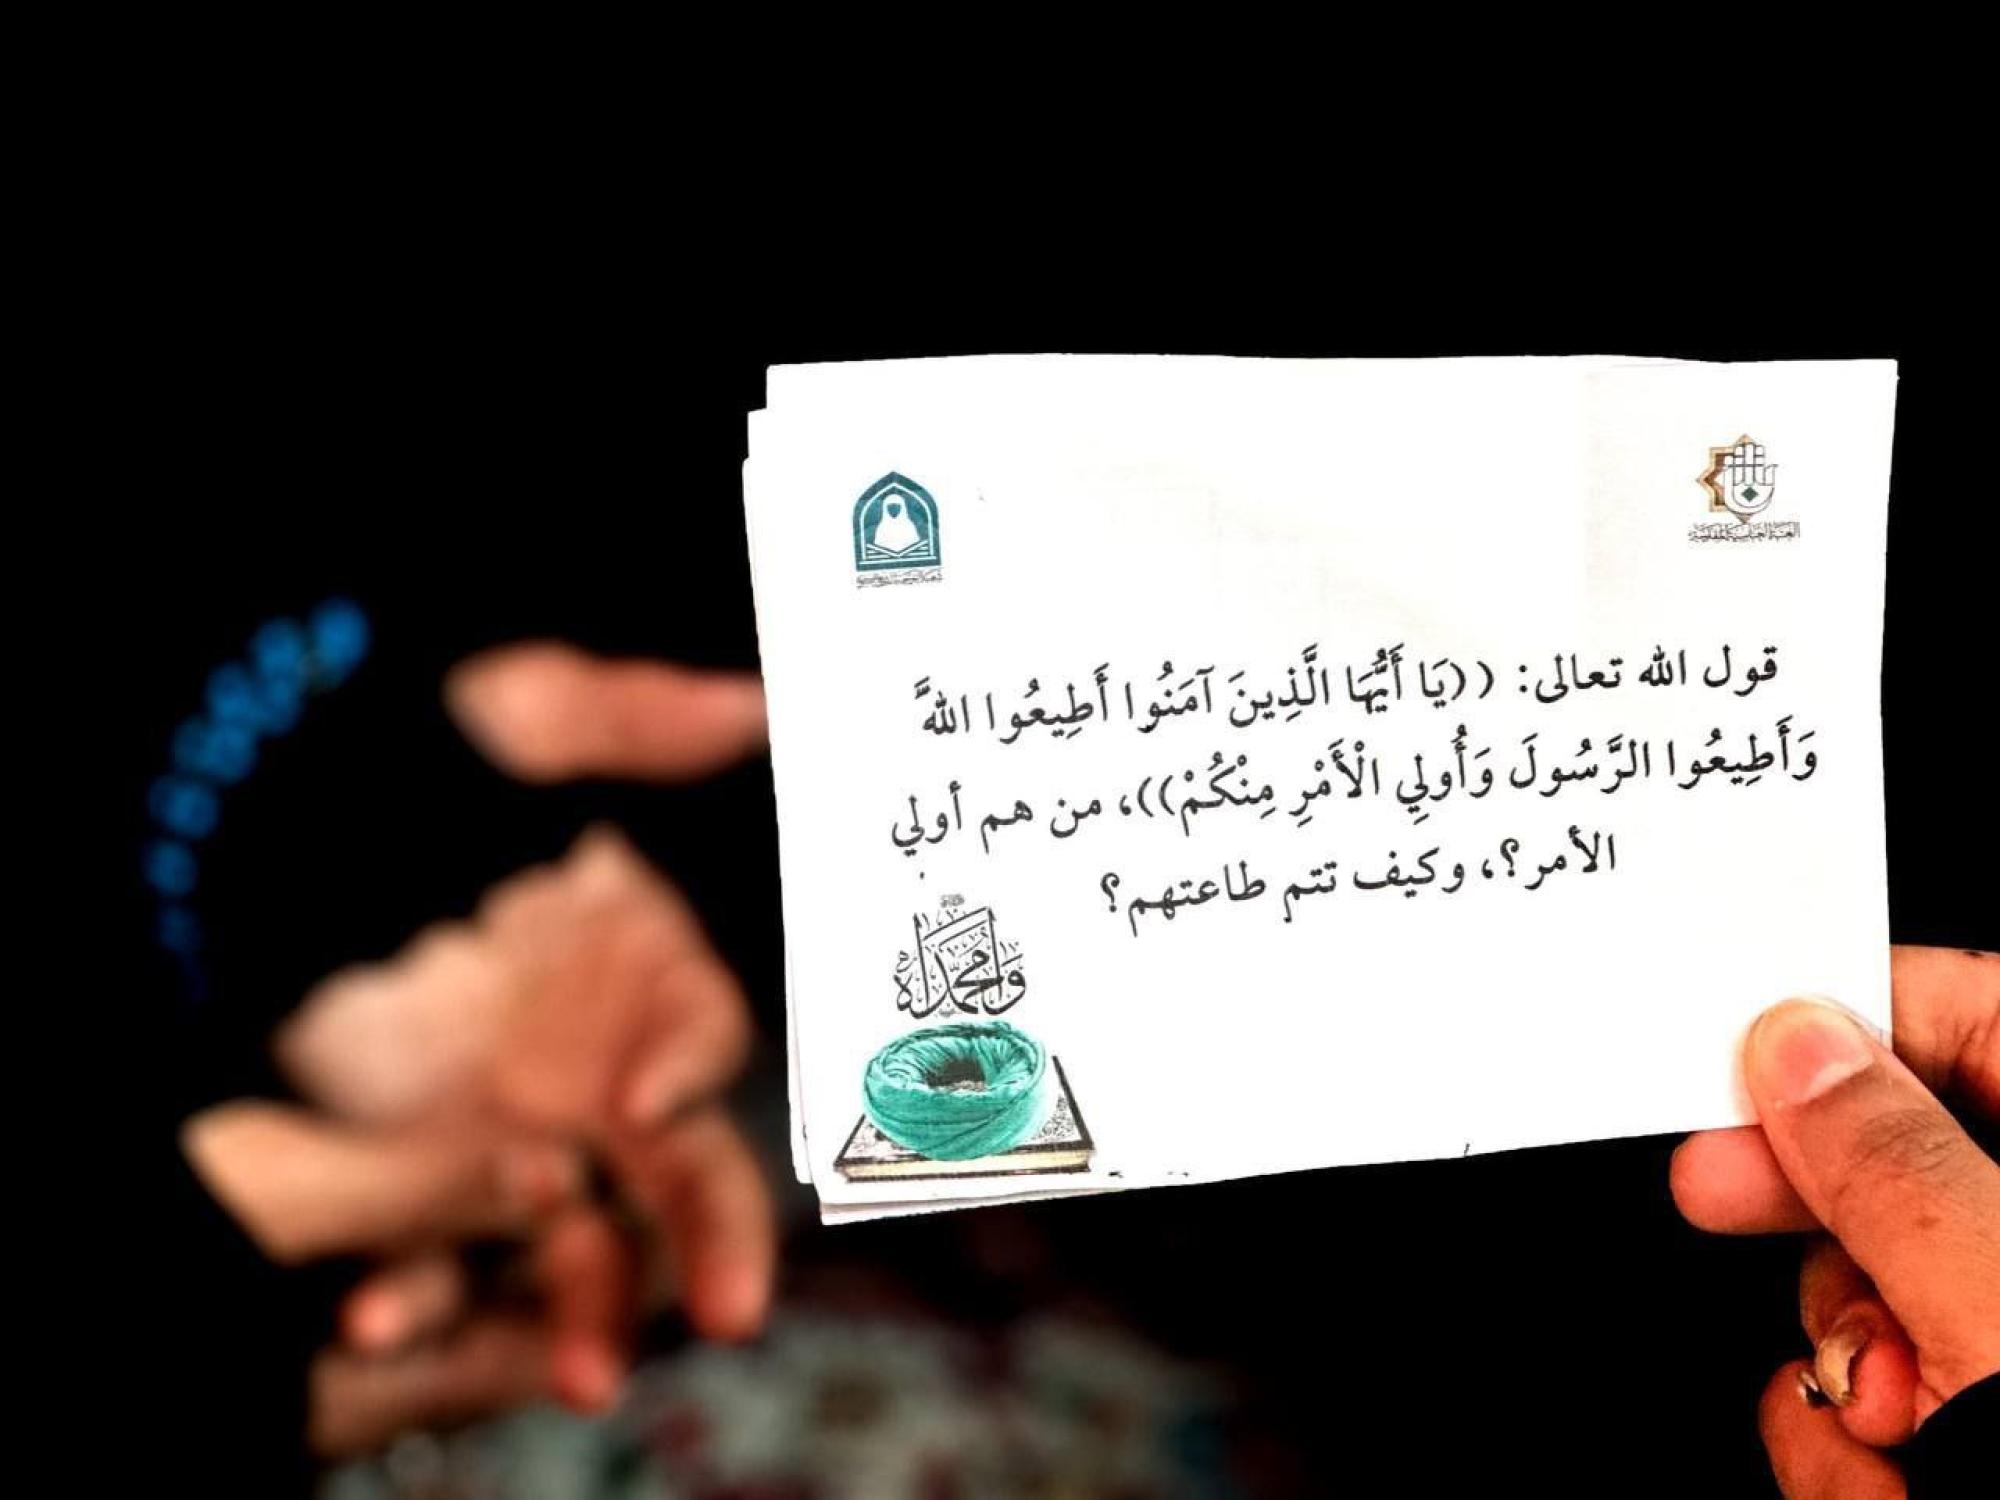 العتبة العباسية المقدسة
قول الله تعالى: ((يَا أَيُّهَا الَّذِينَ آمَنُوا أَطِيعُوا اللَّهَ
وَأَطِيعُوا الرَّسُولَ وَأُولِي الْأَمْرِ مِنْكُمْ))، من هم أولي
الأمر؟، وكيف تتم طاعتهم؟
وامحمداه